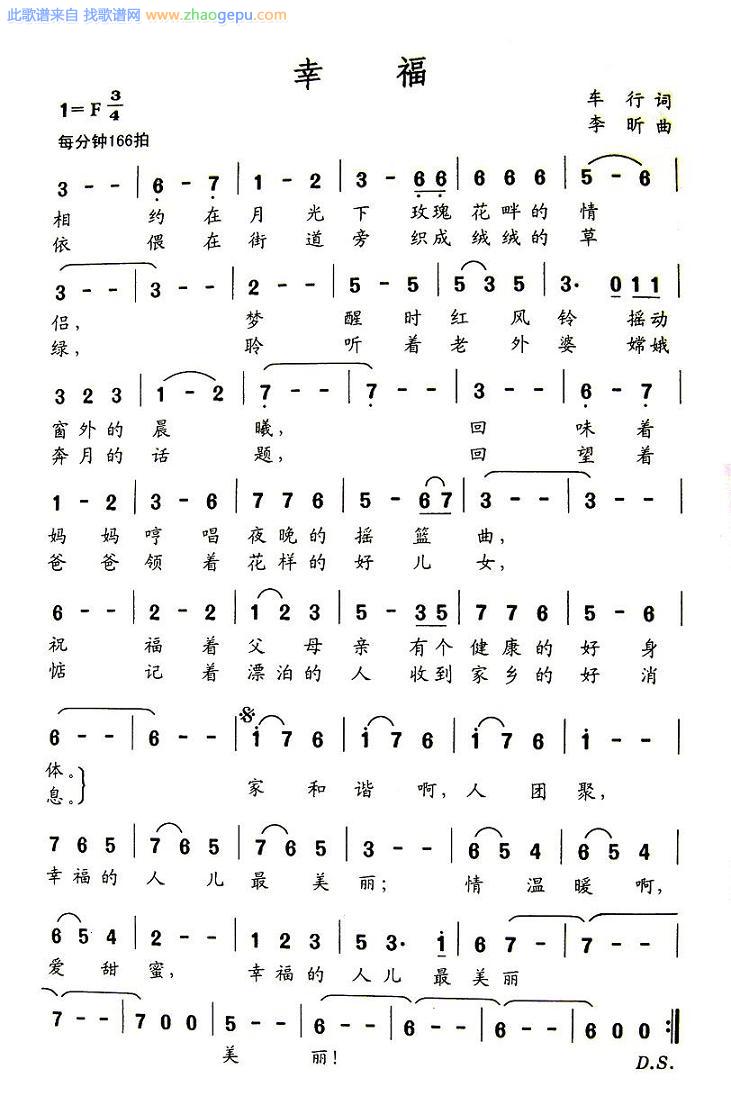 此歌谱来自 找歌谱网 www.zhaogepu.com
幸 福
1=F 3/4
车 行 词
李 昕 曲
每分钟166拍
3 - - | 6 - 7 | 1 - 2 | 3 - 6 6 | 6 6 6 | 5 - 6 |
相 约 在 月 光 下 玫瑰 花 畔 的 情
依 偎 在 街 道 旁 织成 绒 绒 的 草
3 - - | 3 - - | 2 - - | 5 - 5 | 5 3 5 | 3· 0 1 1 |
侣, 梦 醒 时 红 风 铃 摇动
绿, 聆 听 着 老 外 婆 嫦娥
3 2 3 | 1 - 2 | 7 - - | 7 - - | 3 - - | 6 - 7 |
窗 外 的 晨 曦, 回 味 着
奔 月 的 话 题, 回 望 着
1 - 2 | 3 - 6 | 7 7 6 | 5 - 6 7 | 3 - - | 3 - - |
妈 妈 哼 唱 夜 晚 的 摇 篮 曲,
爸 爸 领 着 花 样 的 好 儿 女,
6 - - | 2 - 2 | 1 2 3 | 5 - 3 5 | 7 7 6 | 5 - 6 |
祝 福 着 父 母 亲 有个 健 康 的 好 身
惦 记 着 漂 泊 的 人 收到 家 乡 的 好 消
6 - - | 6 - - | i 7 6 | i 7 6 | i 7 6 | i - - |
体。
息。
家 和 谐 啊, 人 团 聚,
7 6 5 | 7 6 5 | 7 6 5 | 3 - - | 6 5 4 | 6 5 4 |
幸 福 的 人 儿 最 美 丽; 情 温 暖 啊,
6 5 4 | 2 - - | 1 2 3 | 5 3· i | 6 7 - | 7 - - |
爱 甜 蜜, 幸 福 的 人 儿 最 美 丽
7 - - | 7 0 0 | 5 - - | 6 - - | 6 - - | 6 - - | 6 0 0 :||
美 丽!
D.S.